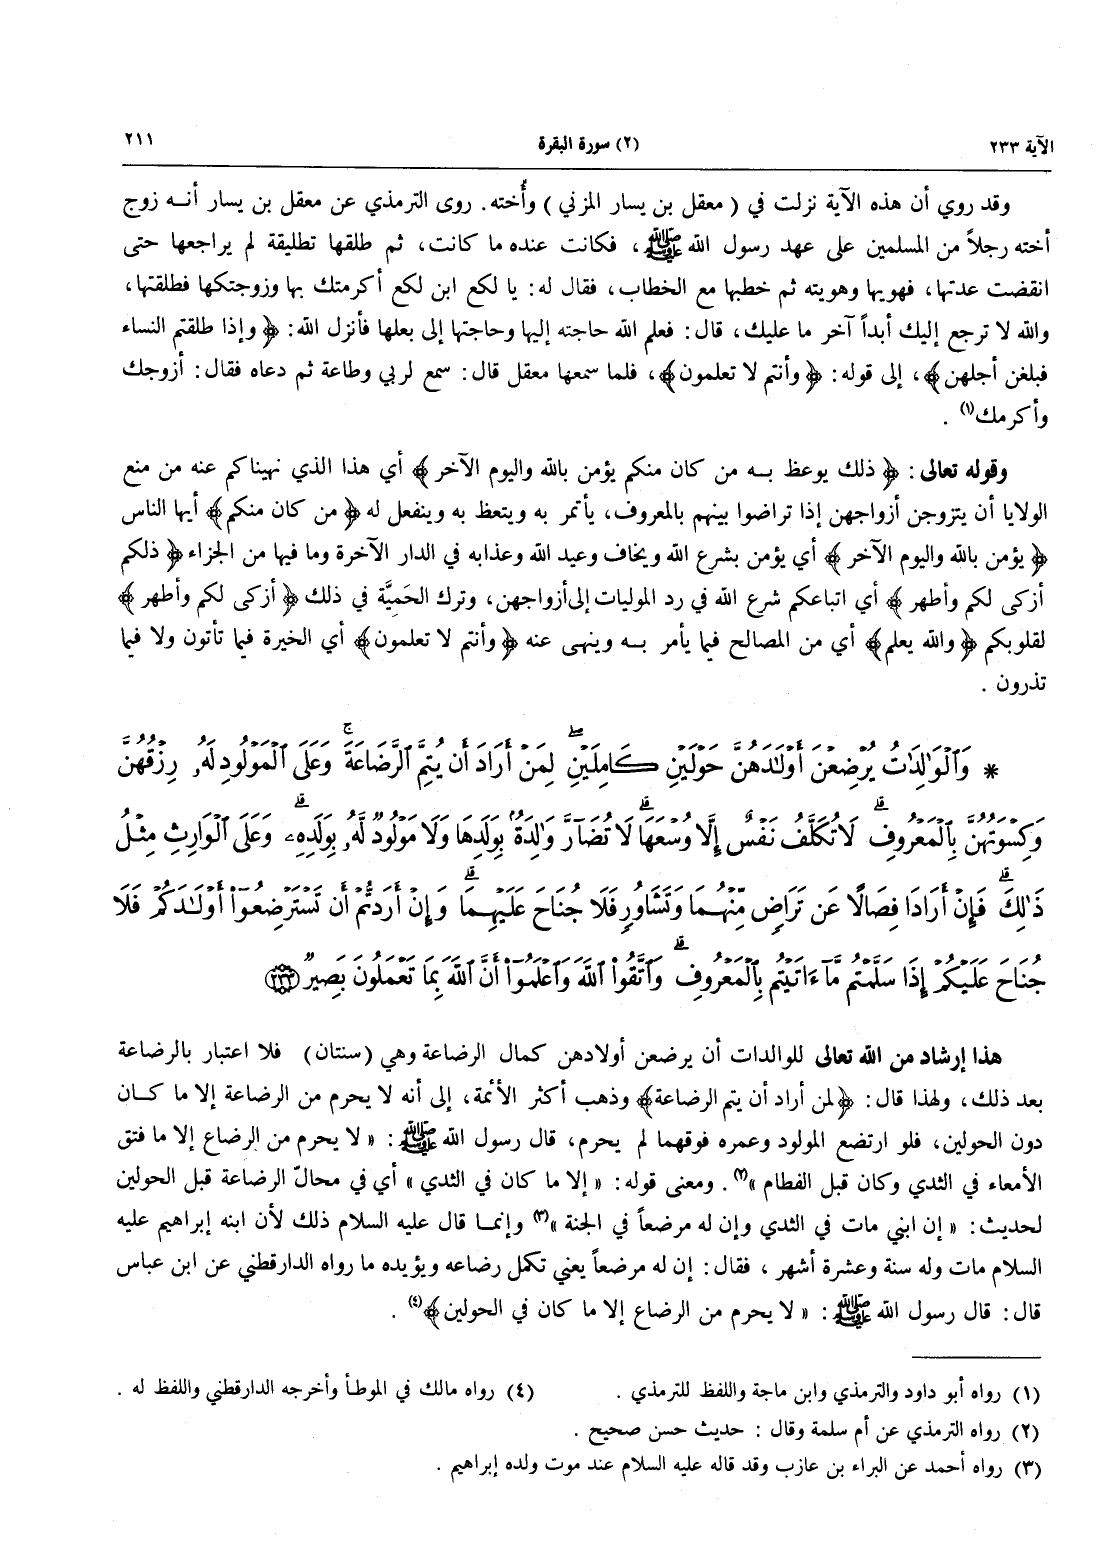 الآية ٢٣٣
(٢) سورة البقرة
٢١١
وقد روي أن هذه الآية نزلت في ( معقل بن يسار المزني ) وأُخته. روى الترمذي عن معقل بن يسار أنـه زوج
أخته رجلاً من المسلمين على عهد رسول الله ﷺ ، فكانت عنده ما كانت، ثم طلقها تطليقة لم يراجعها حتى
انقضت عدتها، فهويها وهويته ثم خطبها مع الخطاب، فقال له: يا لكع ابن لكع أكرمتك بها وزوجتكها فطلقتها،
والله لا ترجع إليك أبداً آخر ما عليك، قال: فعلم الله حاجته إليها وحاجتها إلى بعلها فأنزل الله: ﴿ وإذا طلقتم النساء
فبلغن أجلهن﴾، إلى قوله: ﴿ وأنتم لا تعلمون﴾، فلما سمعها معقل قال: سمع لربي وطاعة ثم دعاه فقال: أزوجك
وأكرمك(١) .
وقوله تعالى: ﴿ ذلك يوعظ بـه من كان منكم يؤمن بالله واليوم الآخر ﴾ أي هذا الذي نهيناكم عنه من منع
الولايا أن يتزوجن أزواجهن إذا تراضوا بينهم بالمعروف، يأتمر به ويتعظ به وينفعل له ﴿ من كان منكم﴾ أيها الناس
﴿ يؤمن بالله واليوم الآخر ﴾ أي يؤمن بشرع الله ويخاف وعيد الله وعذابه في الدار الآخرة وما فيها من الجزاء ﴿ ذلكم
أزكى لكم وأطهر ﴾ أي اتباعكم شرع الله في رد الموليات إلى أزواجهن، وترك الحَميَّة في ذلك ﴿ أزكى لكم وأطهر ﴾
لقلوبكم ﴿ والله يعلم﴾ أي من المصالح فيما يأمر بـه وينهى عنه ﴿ وأنتم لا تعلمون﴾ أي الخيرة فيما تأتون ولا فيما
تذرون .
* وَٱلْوَٰلِدَٰتُ يُرْضِعْنَ أَوْلَٰدَهُنَّ حَوْلَيْنِ كَامِلَيْنِ ۖ لِمَنْ أَرَادَ أَن يُتِمَّ ٱلرَّضَاعَةَ ۚ وَعَلَى ٱلْمَوْلُودِ لَهُۥ رِزْقُهُنَّ
وَكِسْوَتُهُنَّ بِٱلْمَعْرُوفِ ۚ لَا تُكَلَّفُ نَفْسٌ إِلَّا وُسْعَهَا ۚ لَا تُضَآرَّ وَٰلِدَةٌۢ بِوَلَدِهَا وَلَا مَوْلُودٌ لَّهُۥ بِوَلَدِهِۦ ۚ وَعَلَى ٱلْوَارِثِ مِثْلُ
ذَٰلِكَ ۗ فَإِنْ أَرَادَا فِصَالًا عَن تَرَاضٍ مِّنْهُمَا وَتَشَاوُرٍ فَلَا جُنَاحَ عَلَيْهِمَا ۗ وَإِنْ أَرَدتُّمْ أَن تَسْتَرْضِعُوٓا۟ أَوْلَٰدَكُمْ فَلَا
جُنَاحَ عَلَيْكُمْ إِذَا سَلَّمْتُم مَّآ ءَاتَيْتُم بِٱلْمَعْرُوفِ ۗ وَٱتَّقُوا۟ ٱللَّهَ وَٱعْلَمُوٓا۟ أَنَّ ٱللَّهَ بِمَا تَعْمَلُونَ بَصِيرٌ ﴿٢٣٣﴾
هذا إرشاد من الله تعالى للوالدات أن يرضعن أولادهن كمال الرضاعة وهي (سنتان) فلا اعتبار بالرضاعة
بعد ذلك، ولهذا قال: ﴿لمن أراد أن يتم الرضاعة﴾ وذهب أكثر الأئمة، إلى أنه لا يحرم من الرضاعة إلا ما كـان
دون الحولين، فلو ارتضع المولود وعمره فوقهما لم يحرم، قال رسول الله ﷺ: « لا يحرم من الرضاع إلا ما فتق
الأمعاء في الثدي وكان قبل الفطام »(٢) . ومعنى قوله: « إلا ما كان في الثدي » أي في محالّ الرضاعة قبل الحولين
لحديث: « إن ابني مات في الثدي وإن له مرضعاً في الجنة »(٣) وإنمـا قال عليه السلام ذلك لأن ابنه إبراهيم عليه
السلام مات وله سنة وعشرة أشهر ، فقال: إن له مرضعاً يعني تكمل رضاعه ويؤيده ما رواه الدارقطني عن ابن عباس
قال: قال رسول الله ﷺ: « لا يحرم من الرضاع إلا ما كان في الحولين﴾(٤) .
(١) رواه أبو داود والترمذي وابن ماجة واللفظ للترمذي .
(٤) رواه مالك في الموطأ وأخرجه الدارقطني واللفظ له .
(٢) رواه الترمذي عن أم سلمة وقال : حديث حسن صحيح .
(٣) رواه أحمد عن البراء بن عازب وقد قاله عليه السلام عند موت ولده إبراهيم .